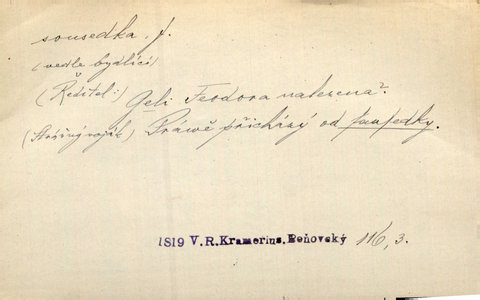 sousedka, f.
(vedle bydlící)
(Ředitel:) Geli Feodora nalezena?
(Strážný voják) Práwě přicházý od sausedky.
1819 V.R.Kramerius.Beňovský 116, 3.